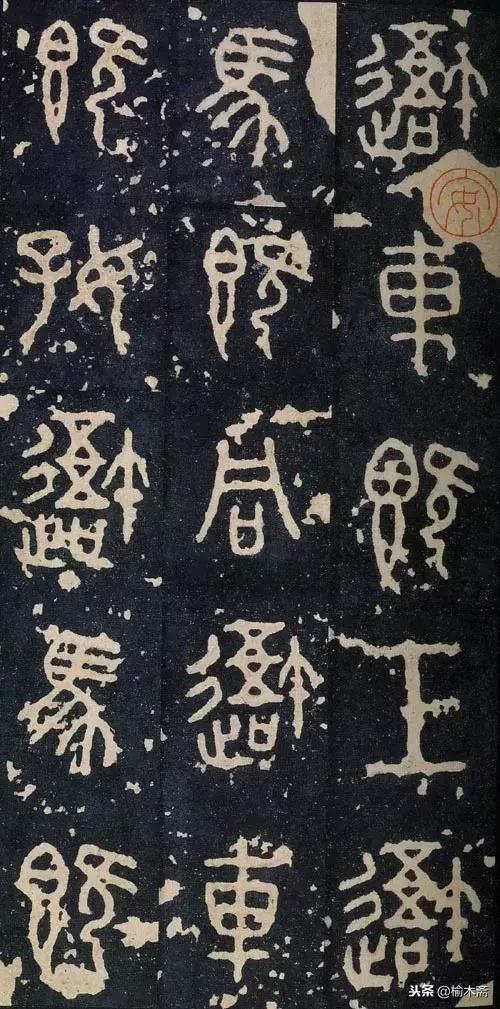 䢔車既工䢔
馬既同䢔車
既好䢔馬既
头条 @榆木斋